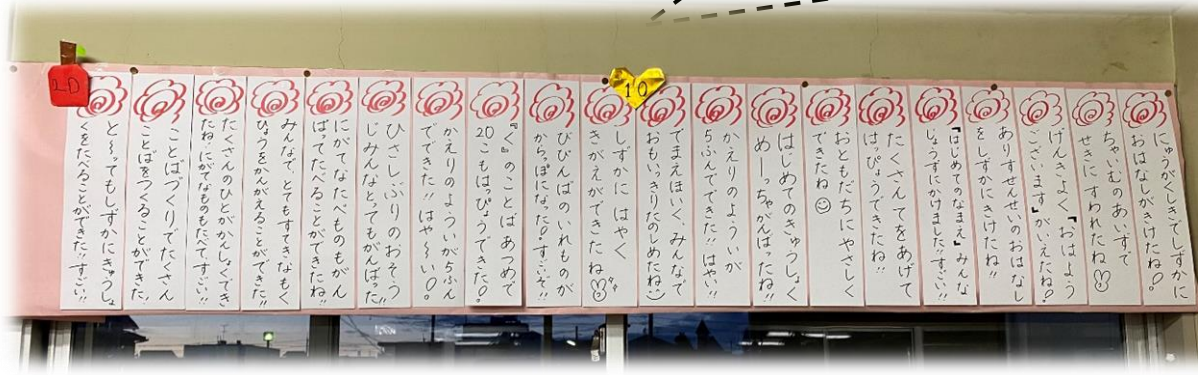 にゅうがくしきでしずかに
おはなしがきけたね♪。
ちゃいむのあいずで
せきにすわれたね
げんきよく、『おはよう
ございます』がいえたね♪
ありすせんせいのおはなし
をしずかにきけたね!!
『はじめてのなまえ』みんな
じょうずにかけました!すごい!!
たくさんてをあげて
はっぴょうできたね!!
おともだちにやさしく
できたね☺
はじめてのきゅうしょく
めーーっちゃがんばったね!!
かえりのよういが
5ふんでできた!!はやい!!
でまえほいく、みんなで
おもいっきりたのしめたね:)
10
しずかにはやく
きがえができたね
びびんばのいれものが
からっぽになった♪すごいぞ!!
『く』のことばあつめで
20こもはっぴょうできた♪。
かえりのよういが5ふん
でできた!!はや〜い♪。
ひさしぶりのおそう
じみんなとってもがんばった!!
にがてなたべものもがん
ばってたべることができたね!!
みんなで、とてもすてきなもく
ひょうをかんがえることができた!!
たくさんのひとがかんしょくでき
たね!にがてなものもたべて、すごい!!
ことばづくりでたくさん
ことばをつくることができた!
と〜ってもしずかにきゅうしょ
くをたべることができた!!すごい!!